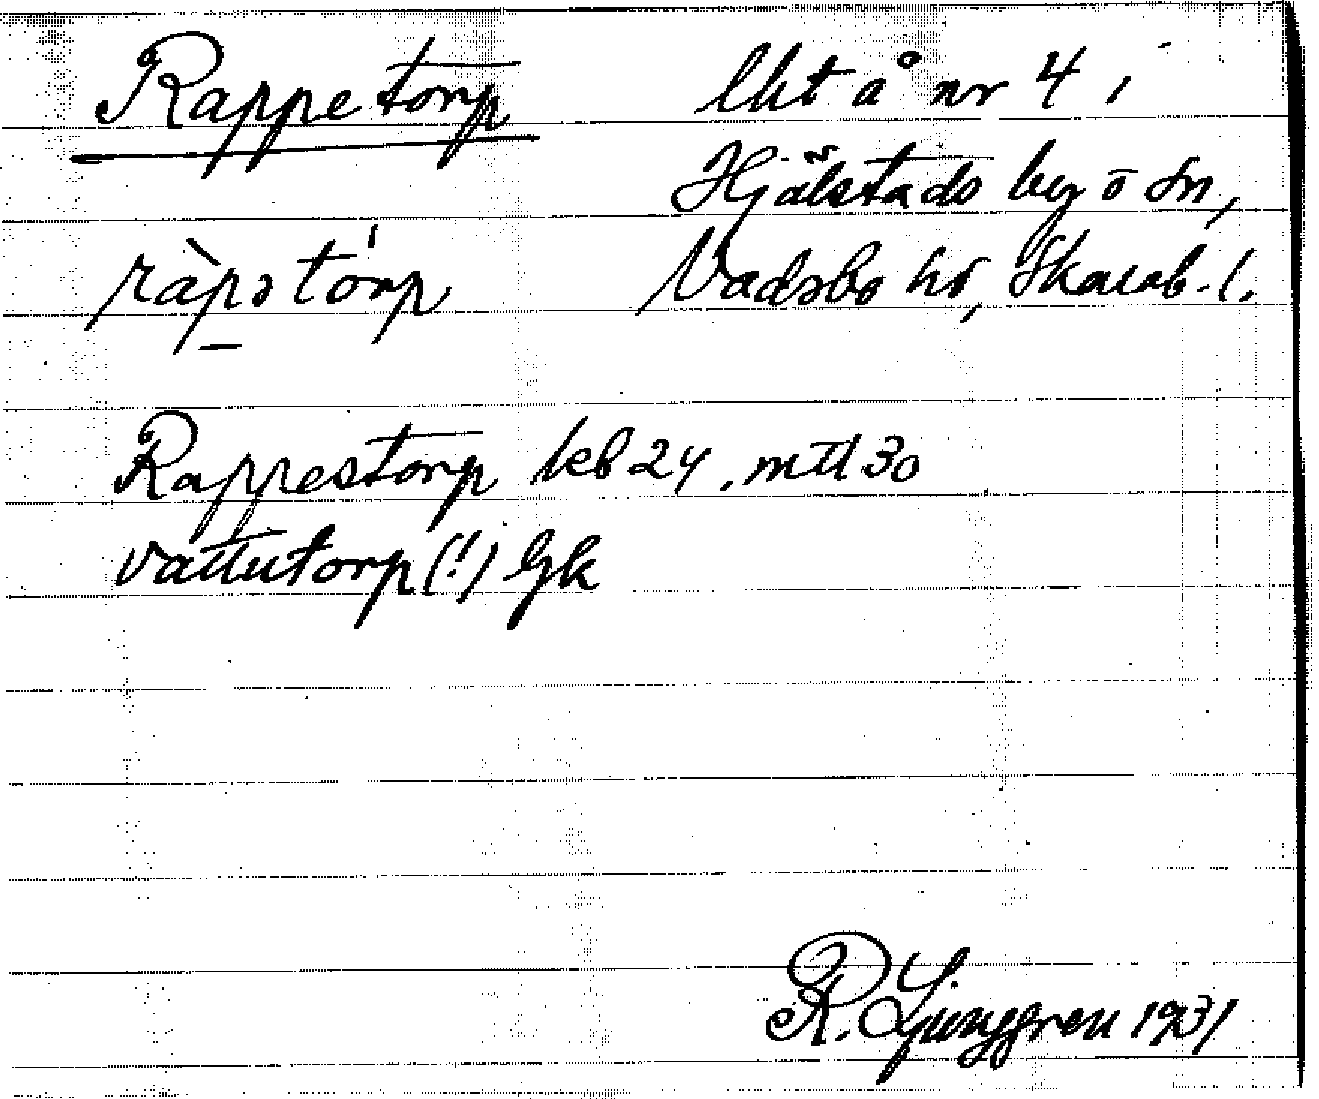 Rappetorp
lht å nr 4 i
Hjälstads by o sn,
Vadsbo hd, Skarab. l.
ràpətórp
Rappestorp kb 24, mtl 30
Vattutorp (!) Gk
R. Ljunggren 1931